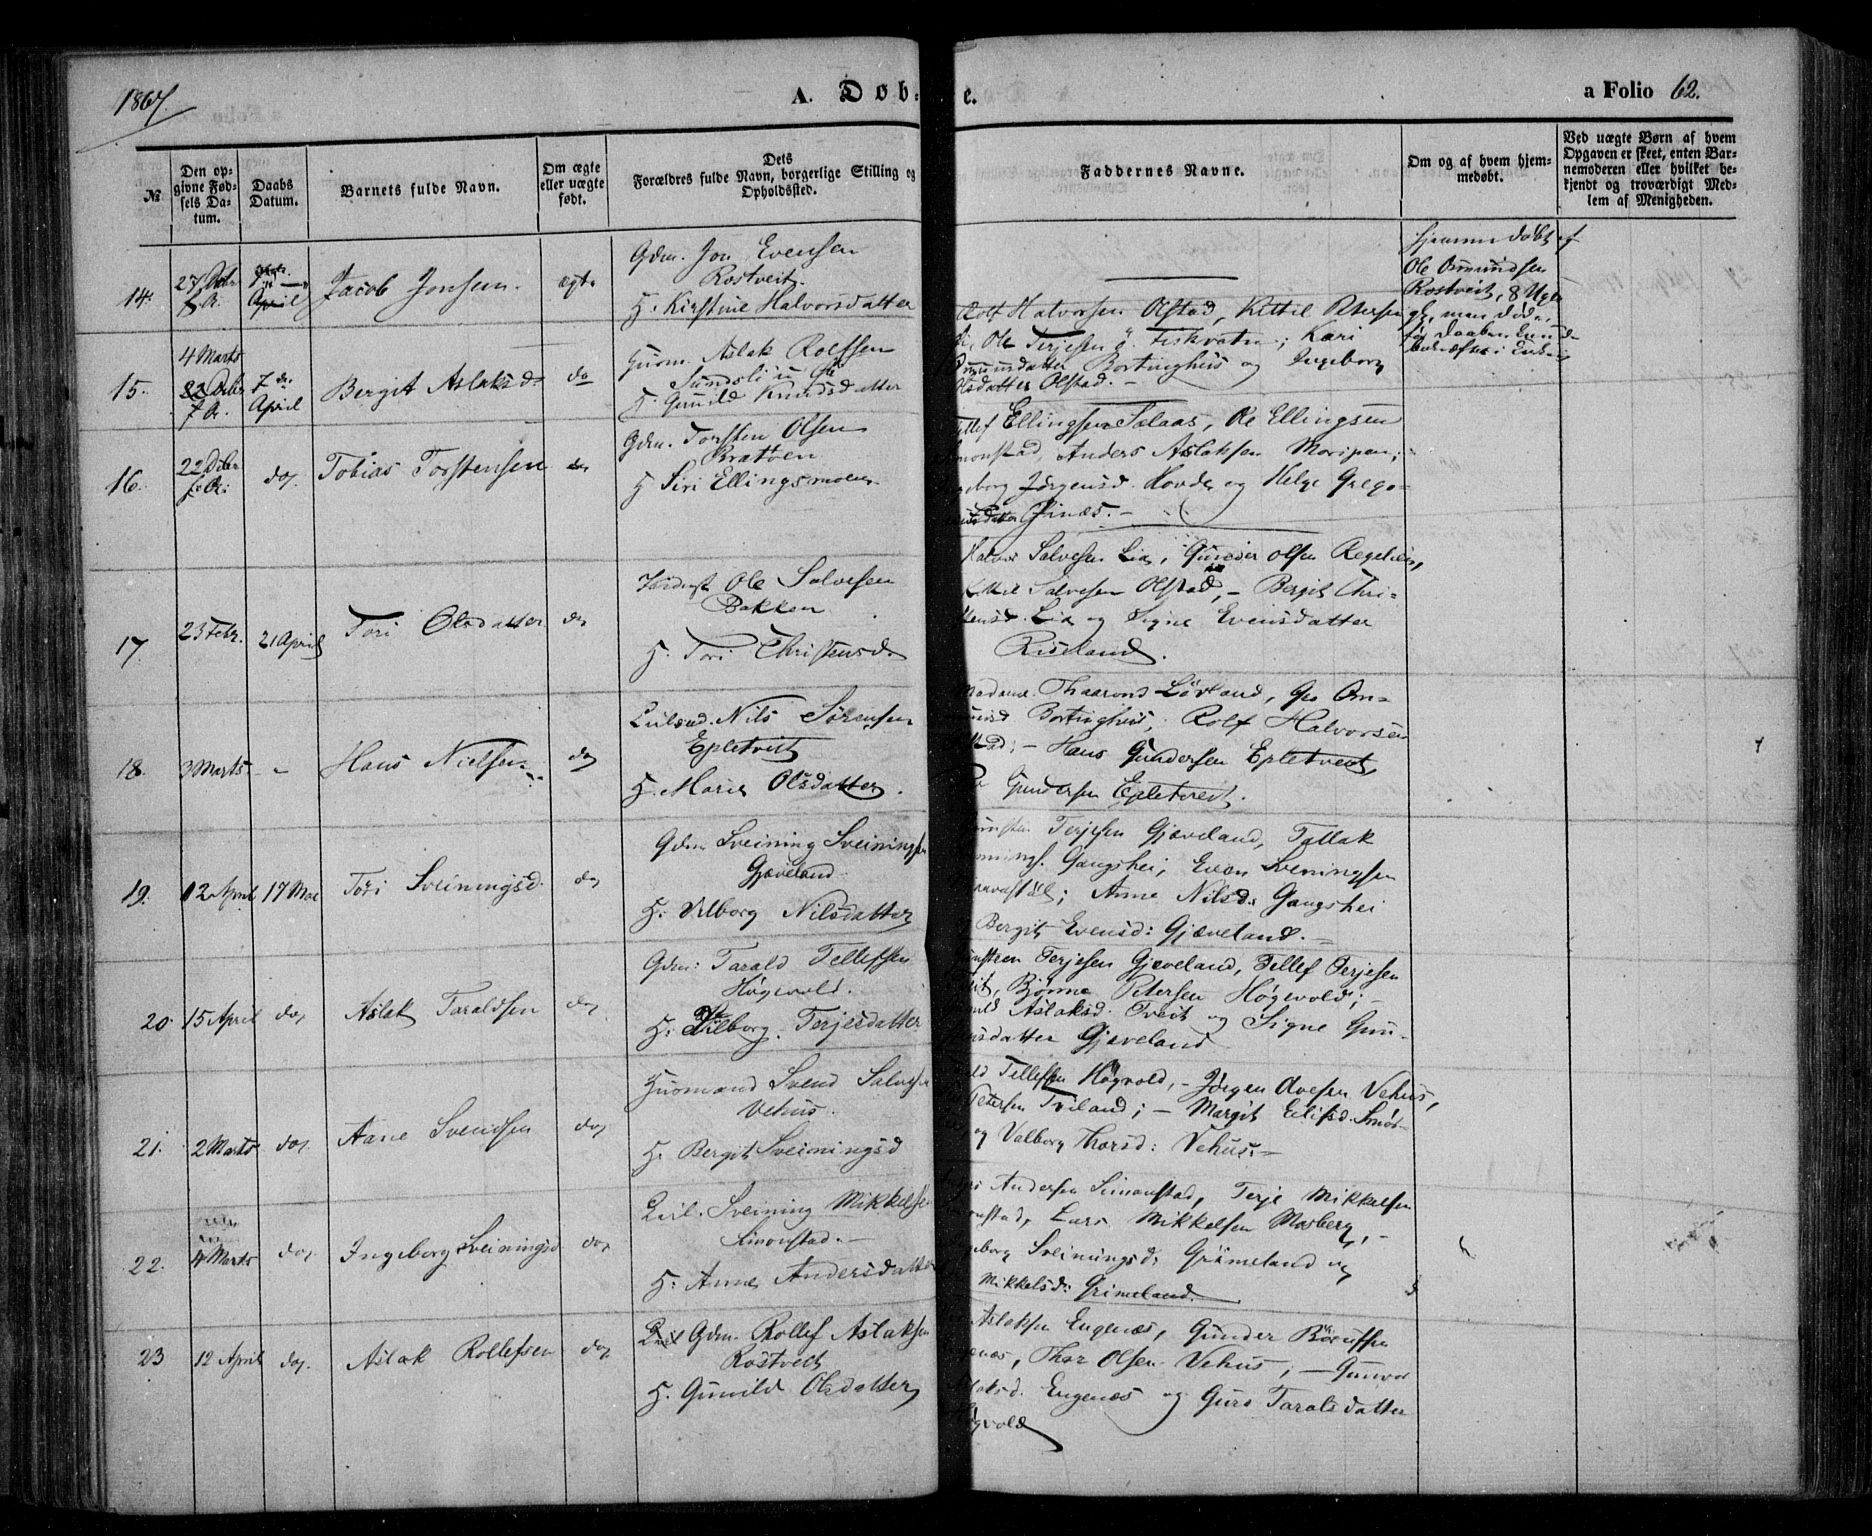 1867.
A. Døbte.
a Folio 62.
№
Den opgivne Fødsels Datum.
Daabs Datum.
Barnets fulde Navn.
Om ægte eller uægte født.
Dets Forældres fulde Navn, borgerlige Stilling og Opholdssted.
Faddernes Navne.
Om og af hvem hjemmedøbt.
Ved uægte Børn af hvem Opgaven er skeet, enten Barnemoderen eller hvilket bekjendt og troværdigt Medlem af Menigheden.
14.
27 Decbr f. A.
April
Jacob Jonsen.
ægte
Gdm. Jon Evensen
Rostveit.
H. Kirstine Halvorsdatter
Hjemmedøbt af
Ole Osmundsen
Rostveit, 8 Uger
gl, men døde
før Daaben kunde
15.
4 Marts
April
Bergit Aslaksd.
do
Huusm. Aslak Rolfsen
Sundsli
H. Gunild Knudsdatter
Rolf Halvorsen Olstad, Kittil Petersen
Ole Terjesen Fiskvatn, Kari
Bortinghus og Ingeborg
Olsdatter Olstad.
16.
22 Dcbr f. A.
do,
Tobias Torstensen
do
Gdm. Torsten Olsen
Bratoen
H Siri Ellingsmoen
Tellef Ellingsen Selaas, Ole Ellingsen
Simonstad, Anders Aslaksen Moripen,
Jørgensd. Hovde og Helge Grego-
17.
23 Febr.
21 April
Tori Olsdatter
do
Inderst Ole Salvesen
Bakken
H. Tori Christensd.
Halvor Salvesen Lia, Gunder Olsen
Salvesen Olstad, - Bergit Chri-
stensd. Lia og Signe Evensdatter
Riseland.
18.
3 Marts
"
Hans Nielsen
do,
Leilænd. Nils Sørensen
Epletveit
H. Maren Olsdatter.
Madame Thaarond Løvland,
Bortinghus, Rolf Halvorsen
Hans Gundersen Epletveit,
Gundersen Epletveit.
19.
12 April
17 Mai
Tori Sveiningsd.
do,
Gdm Sveining Sveiningsen
Gjæveland
H. Valborg Nilsdatter
Terjesen Gjæveland, Tallak
Gangshei, Even Sveningsen
Anne Nilsd: Gangshei
Bergit Evensd: Gjæveland.
20.
15 April
do,
Aslak Taraldsen
do,
Gdm: Tarald Tellefsen
Høgevold.
H. Vilborg. Terjesdatter
Terjesen Gjæveland, Tellef Terjesen
Bjønne Petersen Høgevold;
Aslaksd. Tveit og Signe Gun-
datter Gjæveland
21.
2 Marts
do,
Aane Svendsen
do,
Huusmand Svend Salvesen
Vehus.
H. Bergit Sveiningsd
Tellefsen Høgvold, - Jørgen Avesen Vehus,
Petersen Tviland; - Margit Eilifsd.
og Valborg Thorsd: Vehus.
22.
4 Marts
do,
Ingeborg Sveiningsd
do,
Leil. Sveining Mikkelsen
Simonstad.
H. Anne Andersdatter
Andersen Simonstad, Terje Mikkelsen
Lars Mikkelsen Mosberg,
Sveinungsd. Grimeland og
Mikkelsd: Grimeland.
23
12 April
do,
Aslak Rollefsen
do,
Gdm. Rollef Aslaksen
Rostveit
H. Gunild Olsdatter
Aslaksen Engenæs, Gunder
Thor Olsen Vehus, - Gunvor
Aslaksd. Engenæs og Guro Taralsdatter